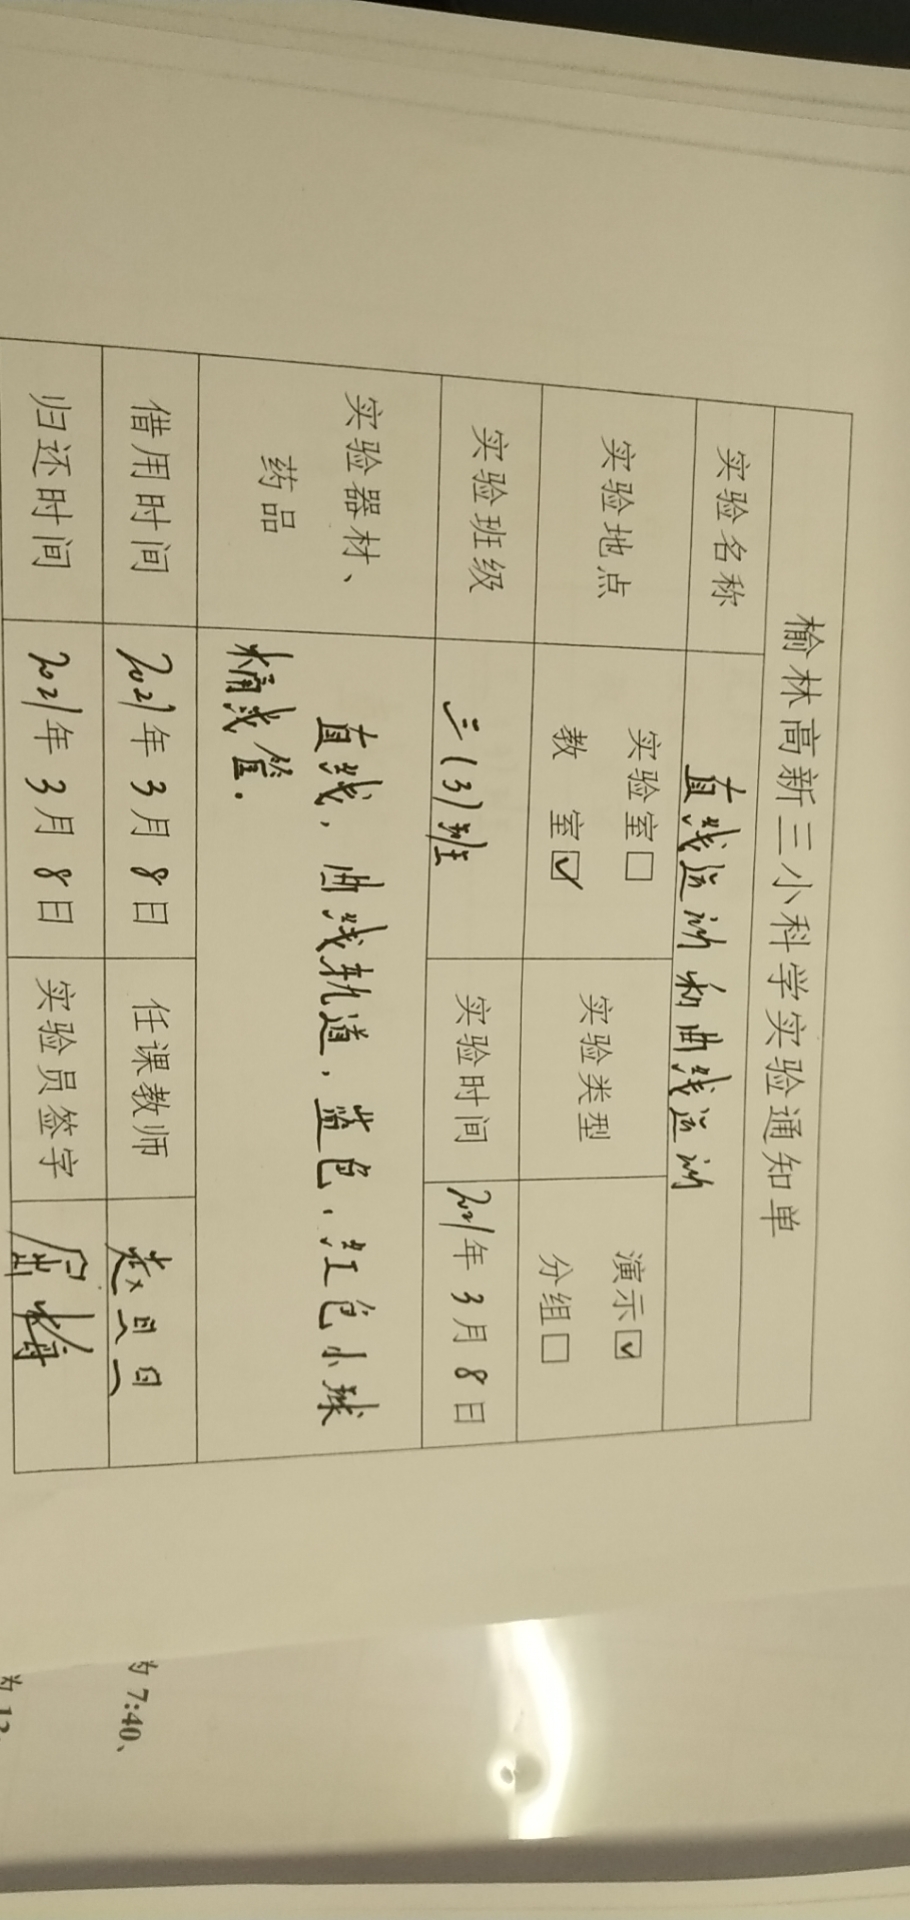 榆林高新三小科学实验通知单
实验名称 直线运动和曲线运动
实验地点 实验室□ 教 室☑ 实验类型 演示☑ 分组□
实验班级 三(3)班 实验时间 2021年3月8日
实验器材、药品 直线,曲线轨道,蓝色、红色小球
借用时间 2021年3月8日 任课教师 赵日日
归还时间 2021年3月8日 实验员签字
为 7:40、
为 12